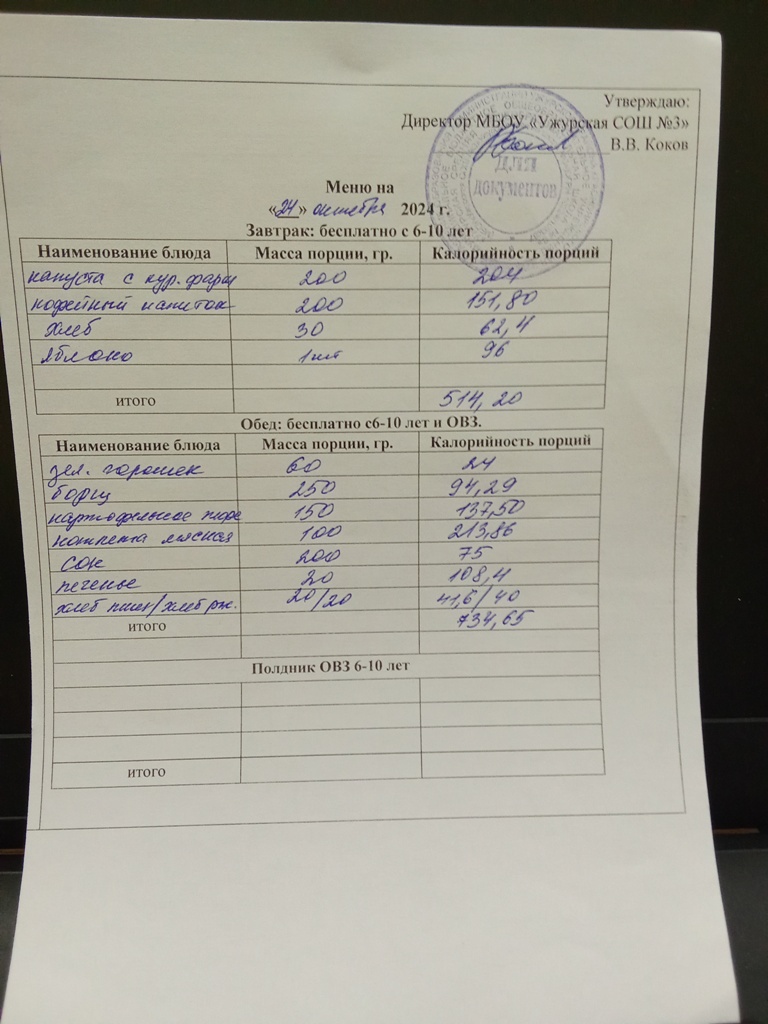 Утверждаю:
Директор МБОУ «Ужурская СОШ №3»
В.В. Коков
ДЛЯ
документов
Меню на
«24» октября 2024 г.
Завтрак: бесплатно с 6-10 лет
Наименование блюда Масса порции, гр. Калорийность порций
капуста с кур. фарш 200 204
кофейный напиток 200 151,80
хлеб 30 62,4
яблоко 1шт 96
итого 514,20
Обед: бесплатно с6-10 лет и ОВЗ.
Наименование блюда Масса порции, гр. Калорийность порций
зел. горошек 60 24
борщ 250 94,29
картофельное пюре 150 137,50
котлета мясная 100 213,86
сок 200 75
печенье 20 108,4
хлеб пшен/хлеб рж. 20/20 41,6/40
итого 734,65
Полдник ОВЗ 6-10 лет
итого